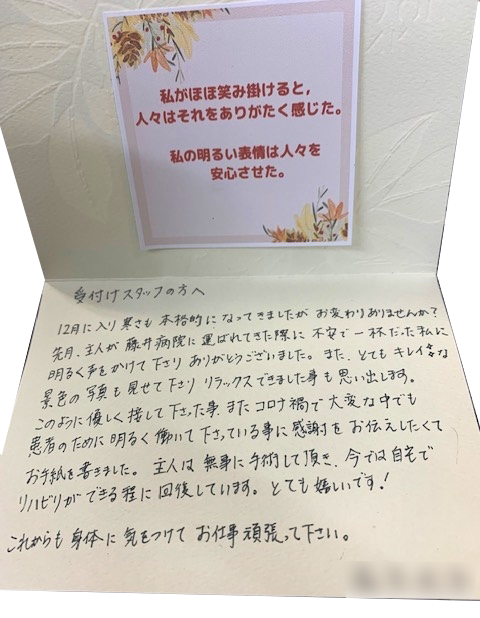 私がほほ笑み掛けると,
人々はそれをありがたく感じた。
私の明るい表情は人々を
安心させた。
受付けスタッフの方へ
12月に入り寒さも本格的になってきましたがお変わりありませんか?
先月、主人が藤井病院に運ばれてきた際に不安で一杯だった私に
明るく声をかけて下さりありがとうございました。また、とてもキレイな
景色の写真も見せて下さりリラックスできました事も思い出します。
このように優しく接して下さった事、またコロナ禍で大変な中でも
患者のために明るく働いて下さっている事に感謝をお伝えしたくて
お手紙を書きました。主人は無事に手術して頂き、今では自宅で
リハビリができる程に回復しています。とても嬉しいです!
これからも身体に気をつけてお仕事頑張って下さい。